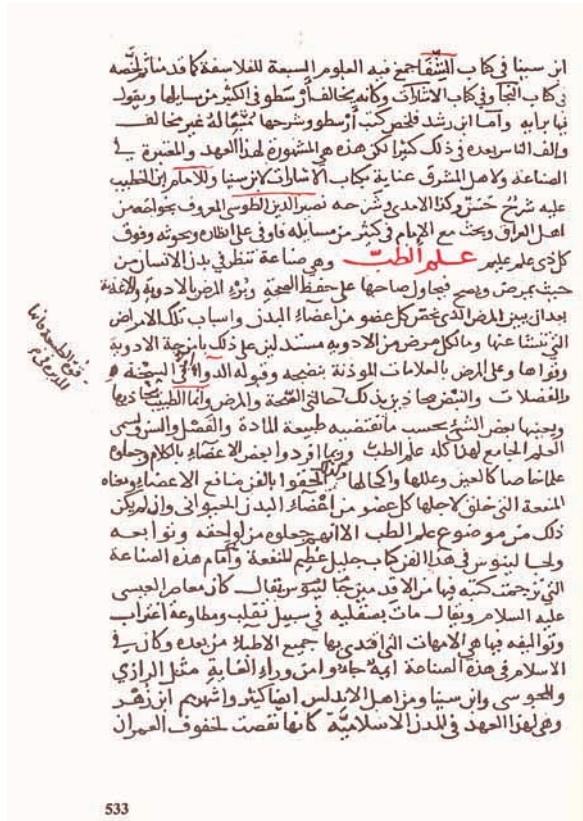 ابن سينا في كتاب الشفا جمع فيه العلوم السبعة للفلاسفة كما قدمنا ثم لخصه
في كتاب النجا وفي كتاب الاشارات وكانه يخالف أرسطو في الكثير من مسايلها ويقول
فيها برايه وأما ابن رشد فلخص كتب أرسطو وشرحها متبعا له غير مخالف
والف الناس بعده في ذلك كثيرا لكن هذه هي المشهورة لهذا العهد والمعتبرة في
الصناعة ولاهل المشرق عناية بكتاب الاشارات لابن سينا وللامام ابن الخطيب
عليه شرح حسن وكذا الامدي وشرحه نصير الدين الطوسي المعروف بخواجه من
اهل العراق وبحث مع الامام في كثير من مسايله فاوفى على انظاره وبحوثه وفوق
كل ذي علم عليم علم الطب وهي صناعة تنظر في بدن الانسان من
حيث يمرض ويصح فيحاول صاحبها على حفظ الصحة وبرء المرض بالادوية والاغذية
بعد ان يبين المرض الذي يخص كل عضو من اعضاء البدن واسباب تلك الامراض
التي تنشا عنها وما لكل مرض من الادوية مستدلين على ذلك بامزجة الادوية
وقواها وعلى المرض بالعلامات الموذنة بنضجه وقبوله الدواء في السحنة
والفضلات والنبض محاذين بذلك حالتي الصحة والمرض وانما الطبيب يحاذيها
ويعينها بعض الشيء بحسب ما تقتضيه طبيعة المادة والفصل والسن ويسمى
العلم الجامع لهذا كله علم الطب وربما افردوا بعض الاعضاء بالكلام وجعلوه
علما خاصا كالعين وعللها واكحالها وكذلك الحقوا بالفن منافع الاعضاء ومعناه
المنفعة التي خلق لاجلها كل عضو من اعضاء البدن الحيواني وان لم يكن
ذلك من موضوع علم الطب الا انهم جعلوه من لواحقه وتوابعه
ولجالينوس في هذا الفن كتاب جليل عظيم المنفعة وامام هذه الصناعة
التي ترجمت كتبه فيها من الاقدمين جالينوس يقال كان معاصرا لعيسى
عليه السلام ويقال مات بصقلية في سبيل تقلب ومطاوعة اغتراب
وتواليفه فيها هي الامهات التي اقتدى بها جميع الاطباء من بعده وكان في
الاسلام في هذه الصناعة ايمة جاءوا من وراء الغاية مثل الرازي
والمجوسي وابن سينا ومن اهل الاندلس ايضا كثير واشهرهم ابن زهر
وهي لهذا العهد في المدن الاسلامية كانها نقصت لخفوف العمران
533